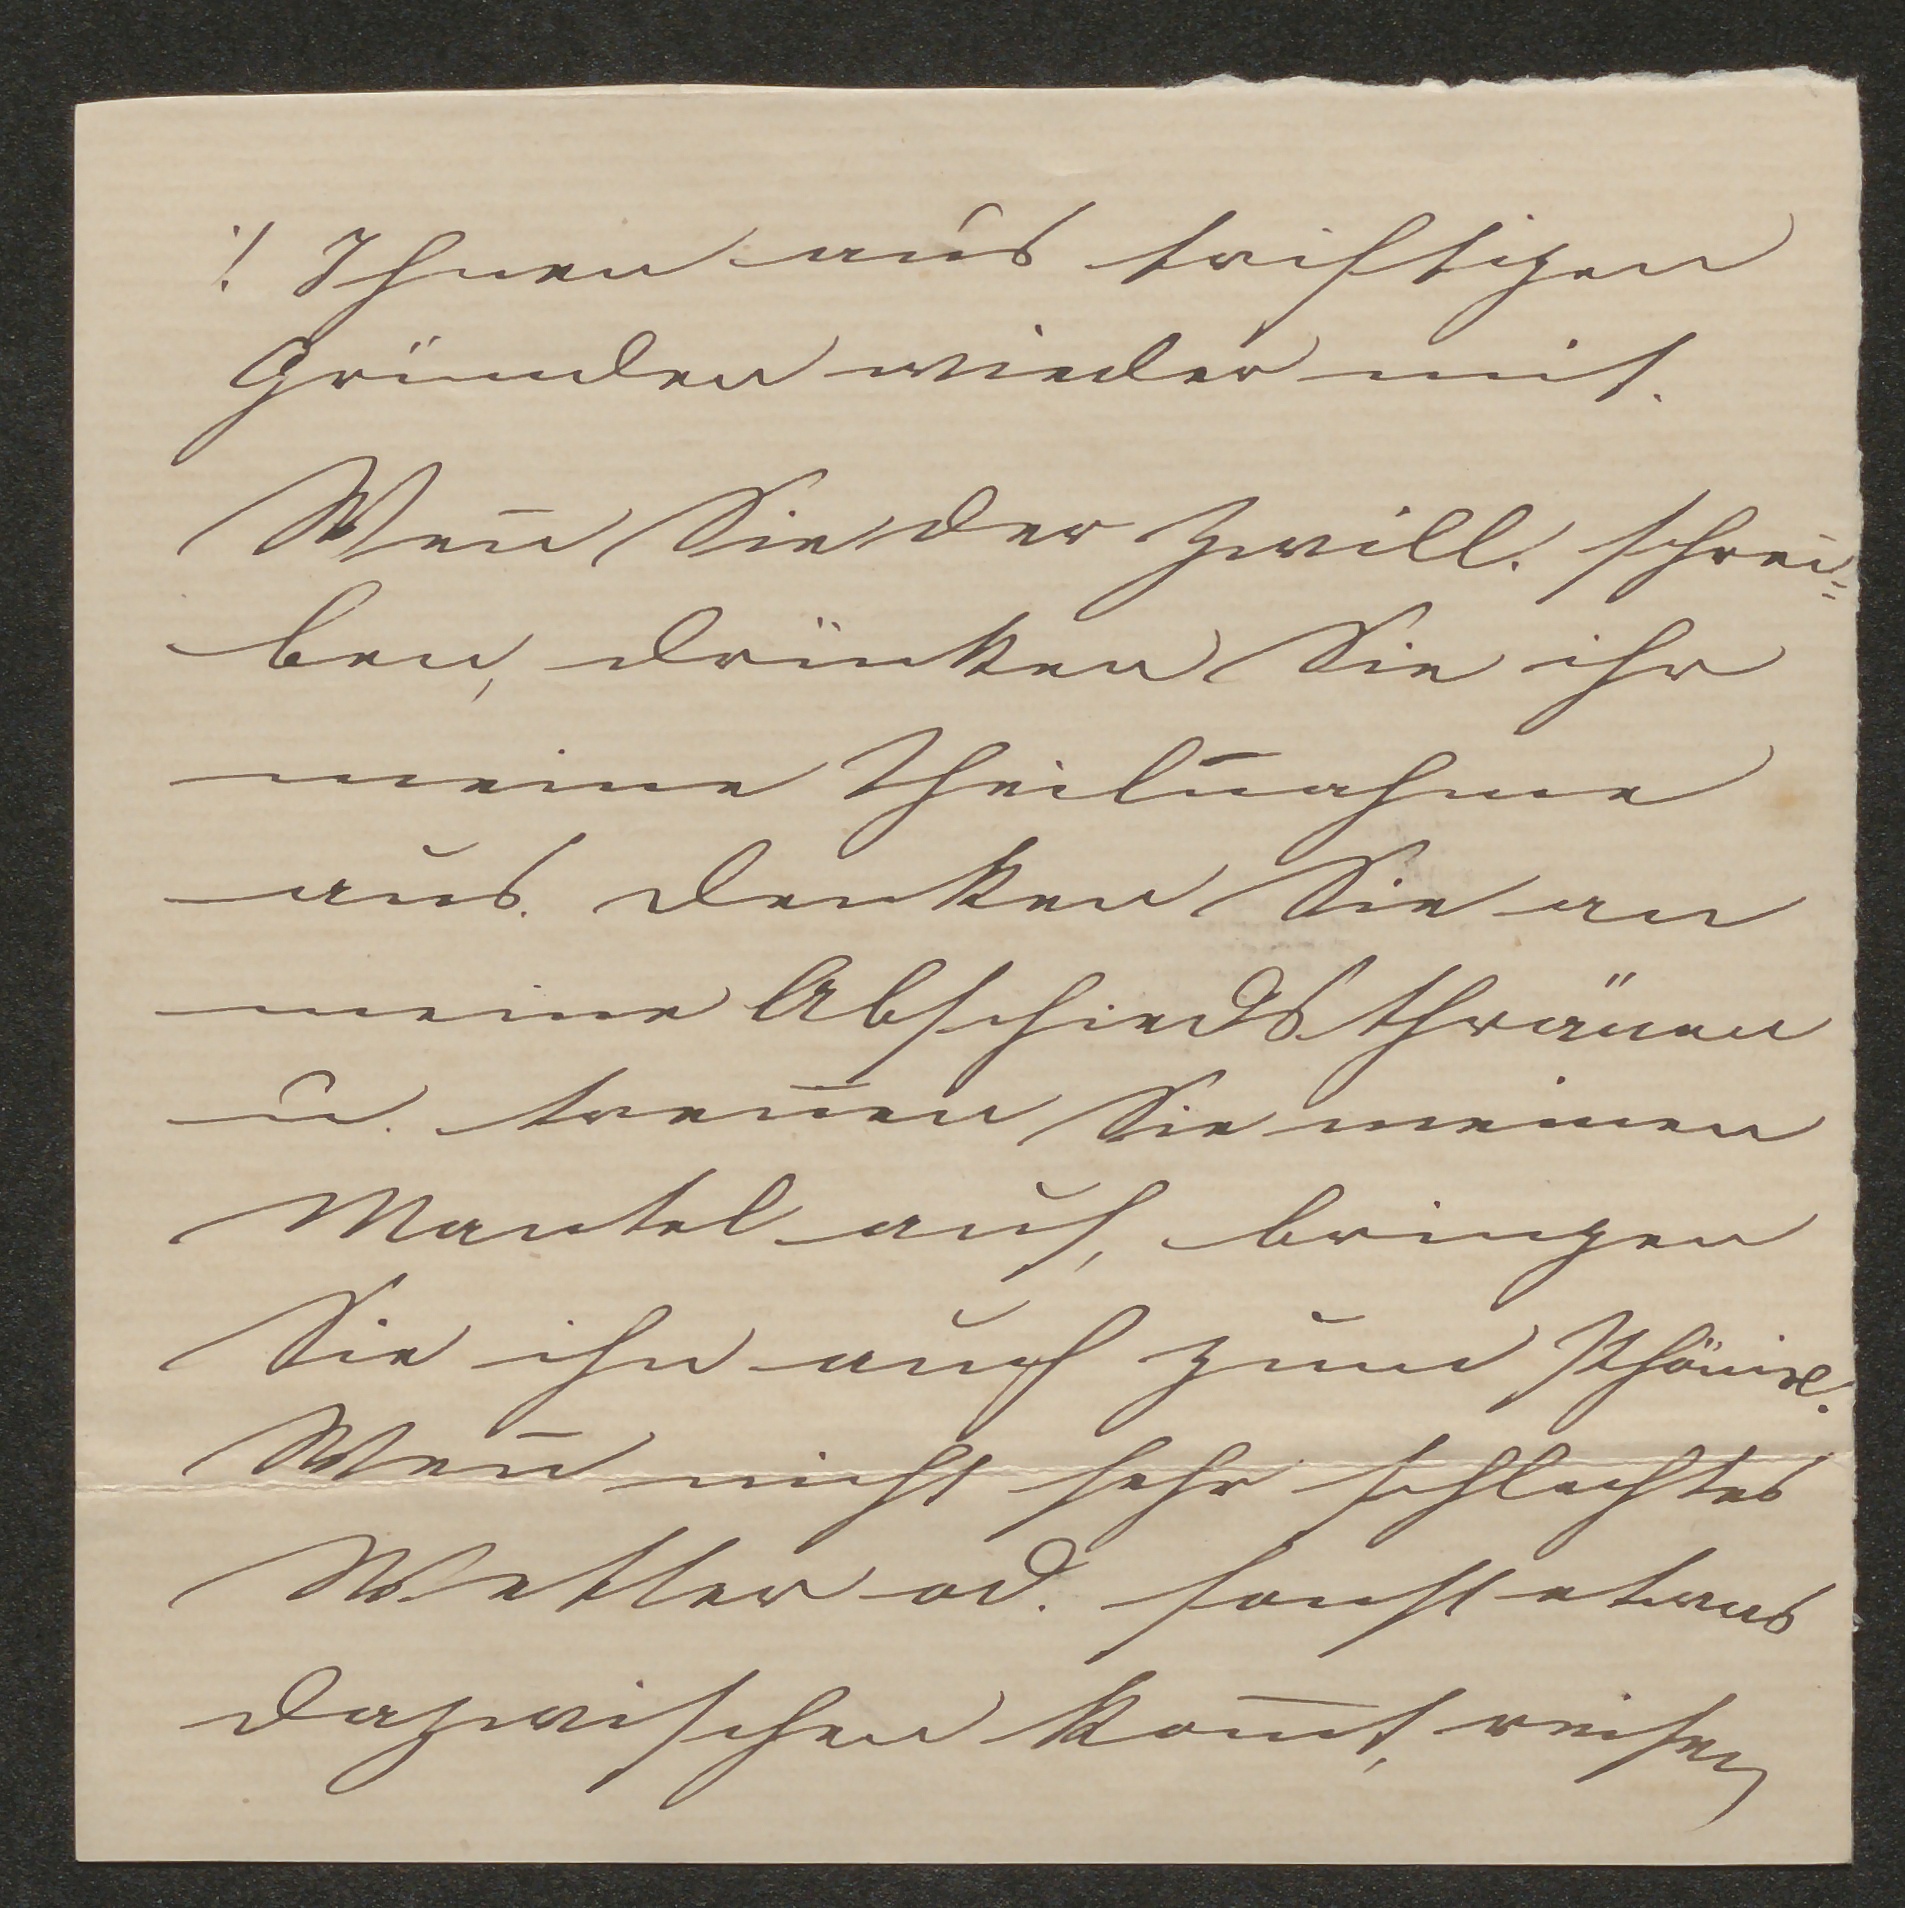 ./. Ihnen aus triftigen
Gründen wieder mit.
Wen̄ Sie der Zwill. schrei=
ben, drücken Sie ihr
meine Theilnahme
aus. Denken Sie an
meine Abschiedsthränen
u. tren̄en Sie meinen
Mantel auf, bringen
Sie ihn auch zum Phönix.
Wen̄ nicht sehr schlechtes
Wetter od. sonst etwas
dazwischen kom̄t, reisen